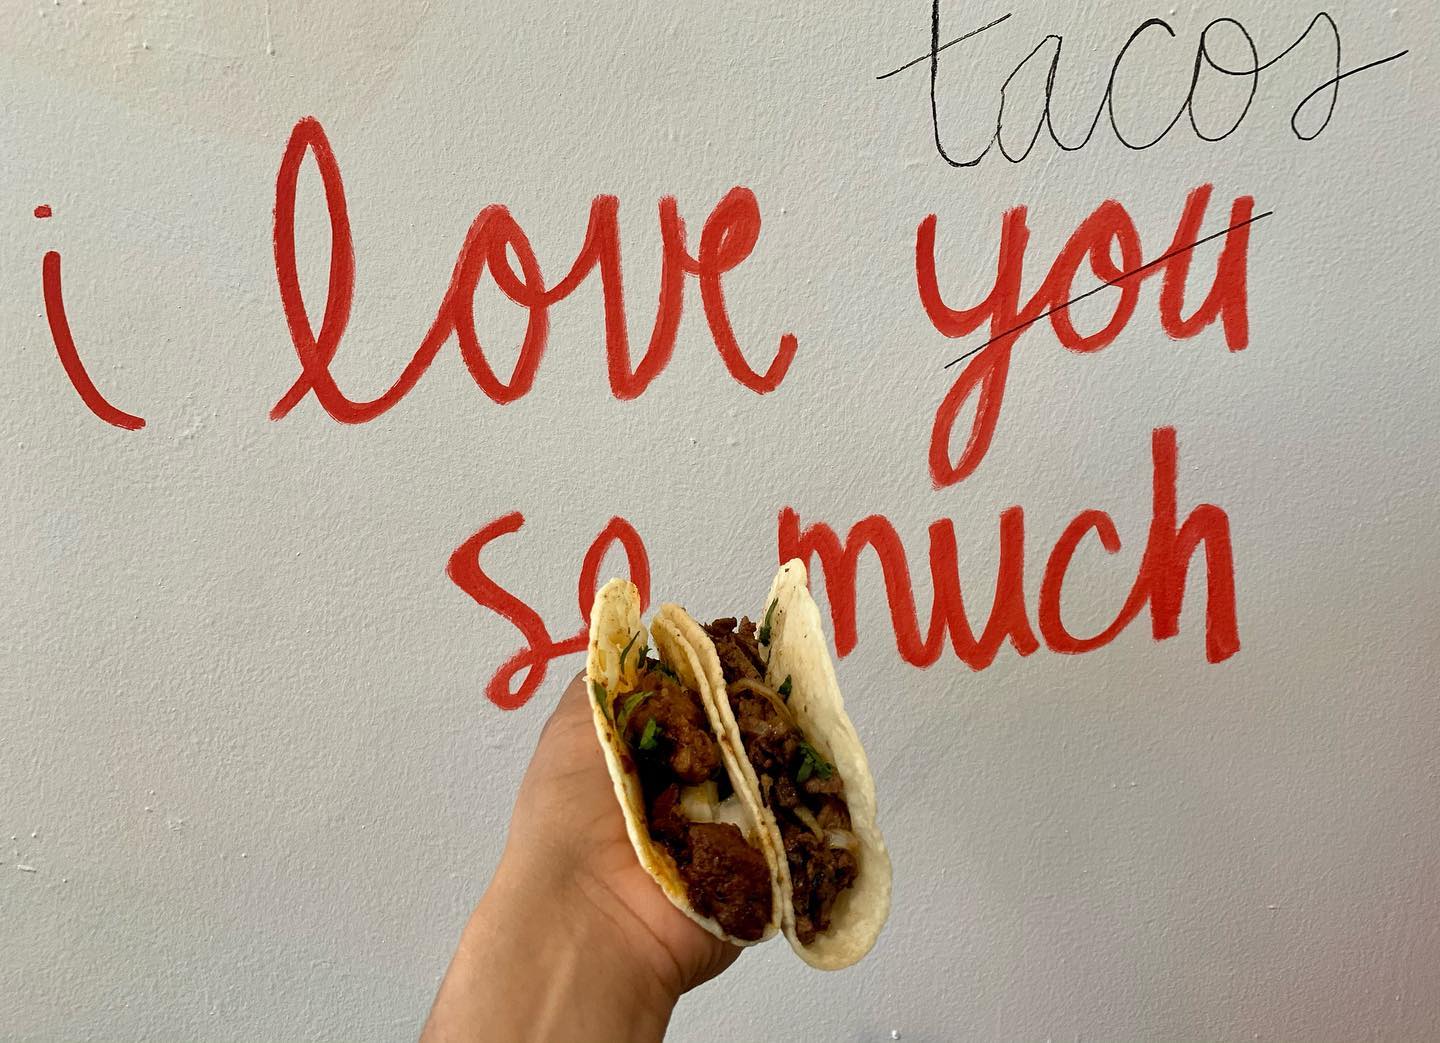 tacos
i love you
so much